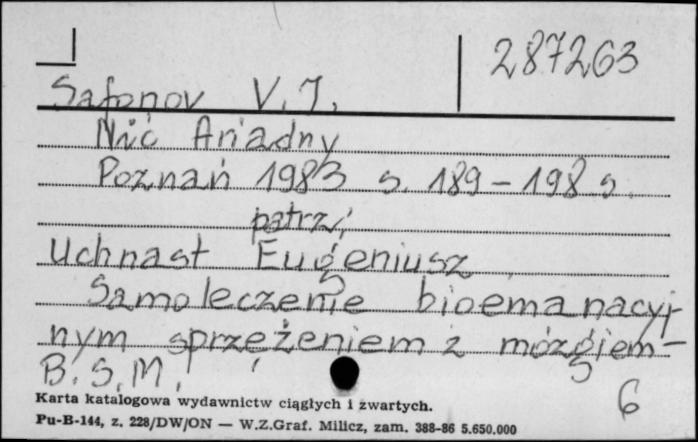 287263
Safonov V. J.
Nić Ariadny
Poznań 1983 s. 189-198 s.
patrz:
Uchnast Eugeniusz
Samoleczenie bioemanacyj-
nym sprzężeniem z mózgiem -
B. S. M.
6
Karta katalogowa wydawnictw ciągłych i zwartych.
Pu-B-144, z. 228/DW/ON — W.Z.Graf. Milicz, zam. 388-86 5.650.000